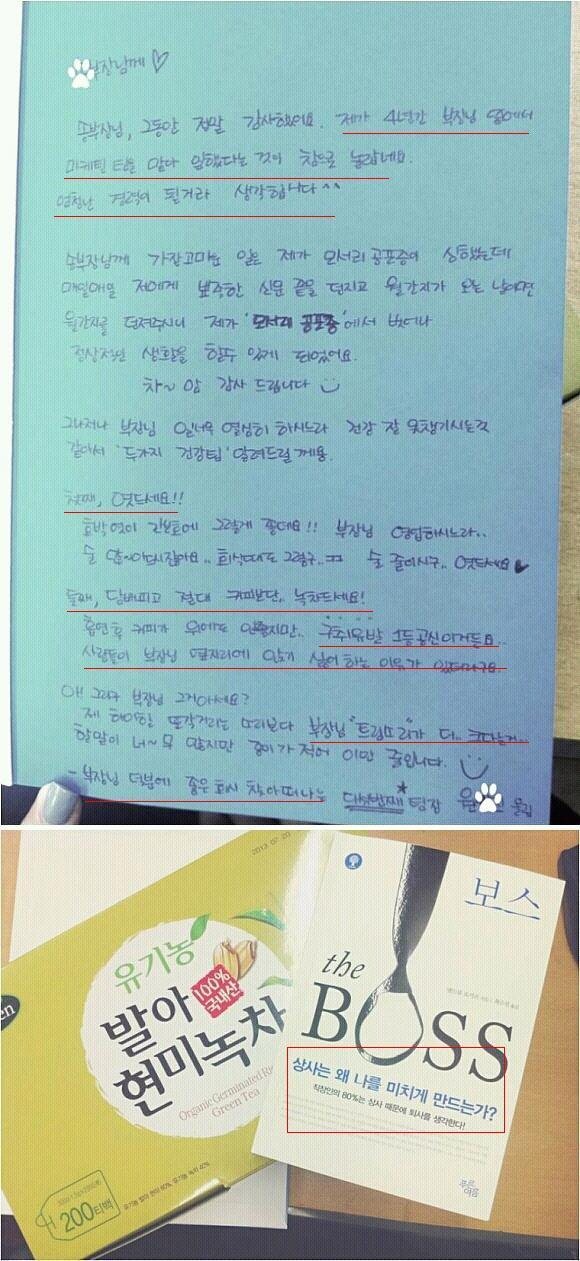 부장님께 ♡
송부장님, 그동안 정말 감사했어요. 제가 4년간 부장님 옆에서
마케팅 팀을 맡아 일했다는 것이 참으로 놀랍네요.
엄청난 경력이 될거라 생각합니다^^
송부장님께 가장고마운 일은 제가 모서리공포증이 심했는데
매일매일 저에게 뾰족한 신문 끝을 던지고 월간지가 오는 날이면
월간지를 던져주시니 제가 '모서리 공포증'에서 벗어나
정상적인 생활을 할수 있게 되었어요.
차~암 감사 드립니다
그나저나 부장님 일너무 열심히 하시느라 건강 잘 못챙기시는것
같아서 '두가지 건강팁' 알려드릴께용.
첫째, 엿드세요!!
호박엿이 간보호에 그렇게 좋데요!! 부장님 영업하시느라..
술 많~이드시잖아요.. 회식때도 그렇구.. ㅋㅋ 술 줄이시구.. 엿드세요♥
둘째, 담배피고 절대 커피말고.. 녹차드세요!
흡연후 커피가 위에도 안좋지만.. 구취유발 1등공신이거든요..
사람들이 부장님 옆자리에 앉기 싫어하는 이유가 있더라구요.
아! 그리구 부장님 그거아세요?
제 하이힐 또각거리는 소리보다 부장님 "트림소리"가 더.. 크다는거..
할말이 너~무 많지만 종이가 적어 이만 줄입니다.
- 부장님 덕분에 좋은 회사 찾아떠나는 다섯번째★ 팀장 윤 올림
2013 07.20
유기농
100%
국내산
발아
현미녹차
Organic Germinated Rice
Green Tea
200티백
보스
the
BOSS
상사는 왜 나를 미치게 만드는가?
직장인의 80%는 상사 때문에 퇴사를 생각한다!
푸른
여름